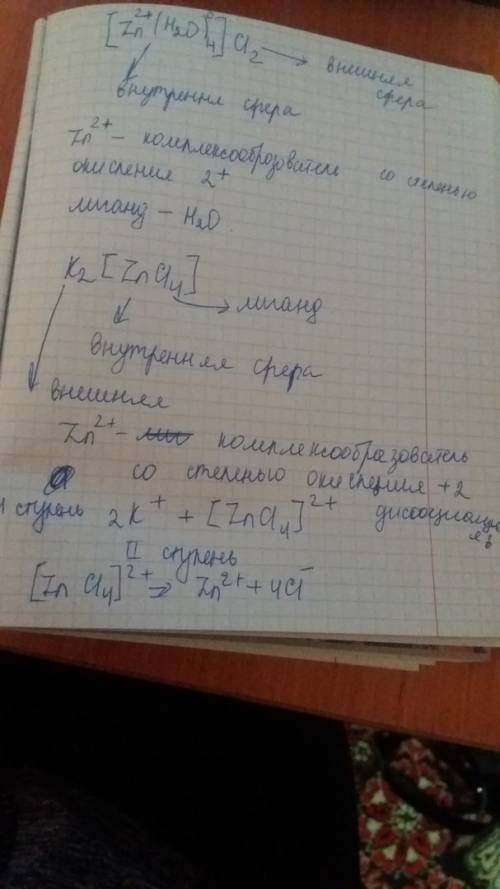 [Zn²⁺(H₂O)⁰₄]Cl₂ → внешняя
сфера
внутрення сфера
Zn²⁺ – комплексообразователь со степенью
окисления 2⁺
лиганд – H₂O
K₂[ZnCl₄] → лиганд
внутренняя сфера
внешняя
Zn²⁺ – комплексообразователь
со степенью окисления +2
I ступень 2K⁺ + [ZnCl₄]²⁺
II ступень
[ZnCl₄]²⁺ ⇒ Zn²⁺ + 4Cl⁻